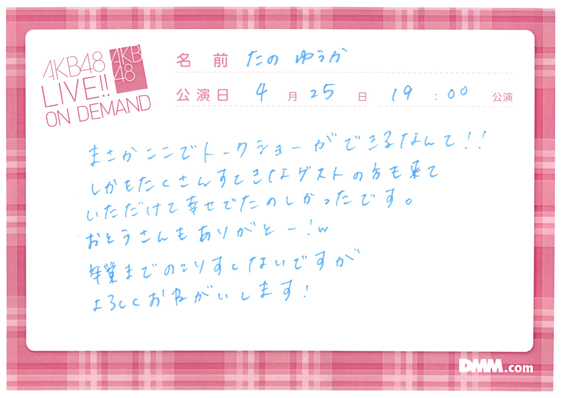 AKB48
LIVE!!
ON DEMAND
AKB
48
名 前 たの ゆうか
公演日 4 月 25 日 19 : 00 公演
まさかここでトークショーができるなんて!!
しかもたくさんすてきなゲストの方も来て
いただけて幸せでたのしかったです。
おとうさんもありがとー!w
卒業までのこりすくないですが
よろしくおねがいします!
DMM.com